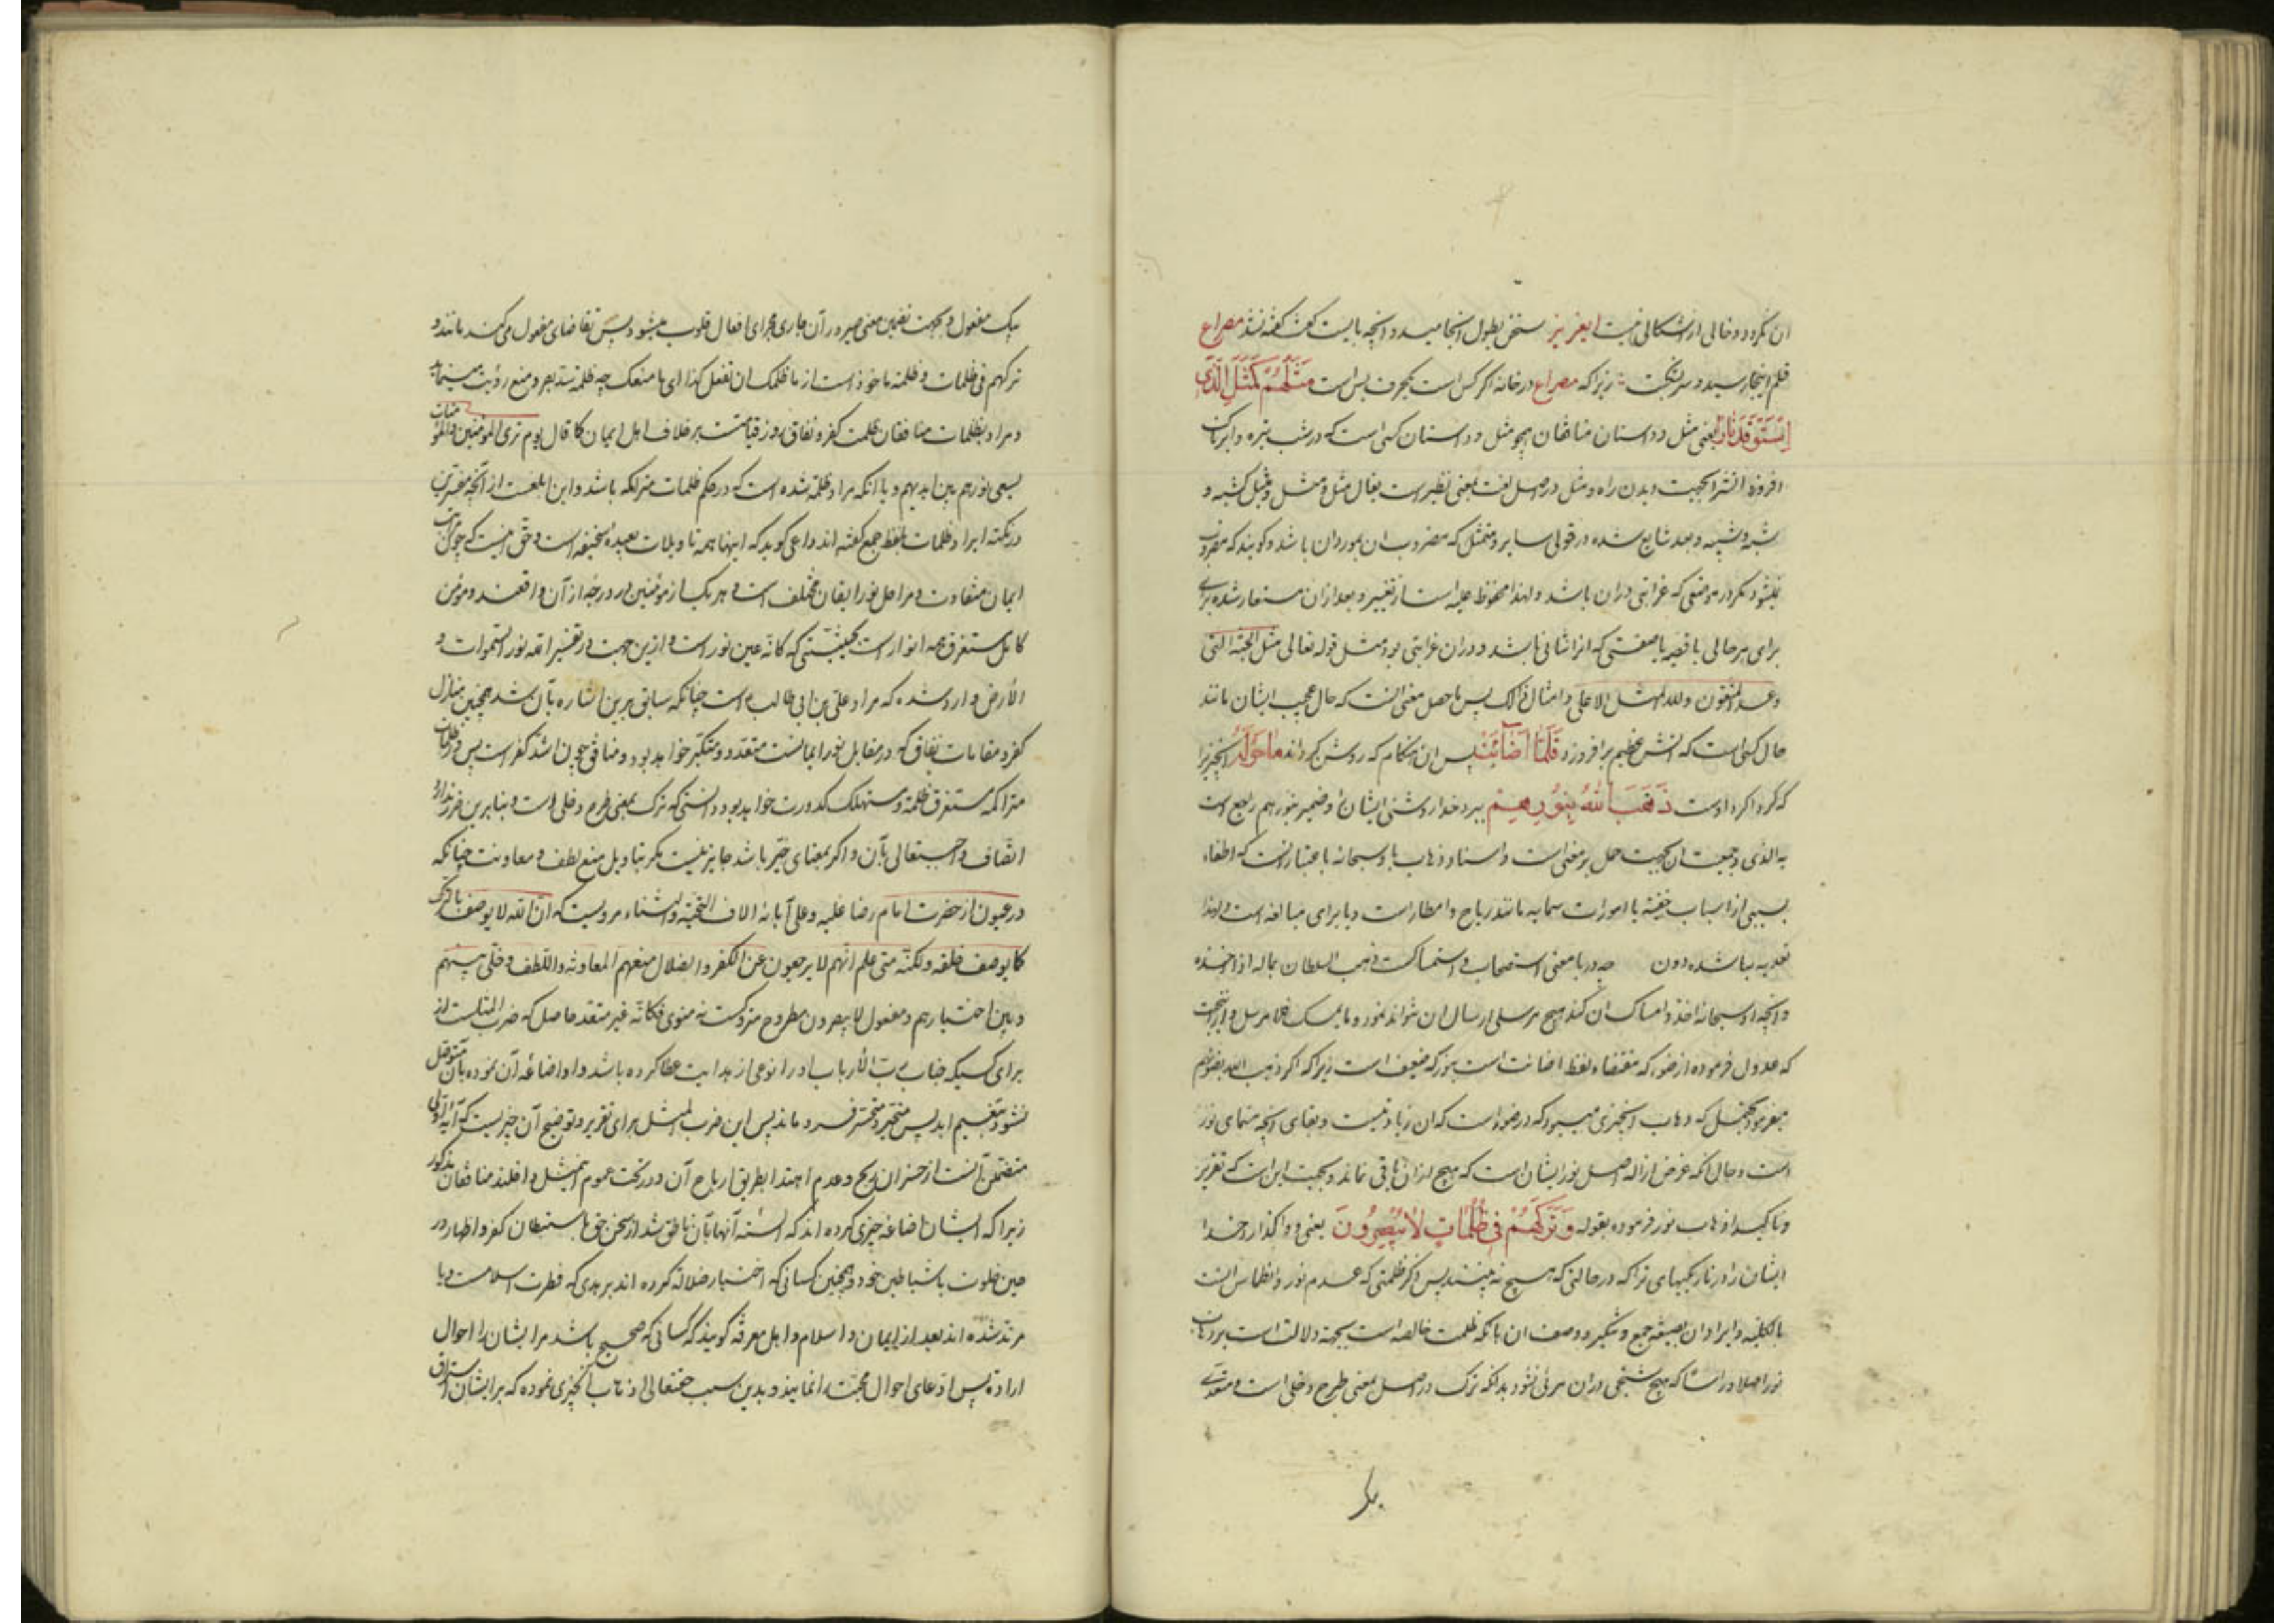 ان نکردد و خالی از اشکالی نیست ایعزیز سخن بطول انجامید و آنچه بایست گفت گفته نشد مصراع
قلم اینجا رسید و سر بشکست زیرا که مصراع در خانه اگر کس است یکحرف بس است مَثَلُهُمْ كَمَثَلِ الَّذِى
اسْتَوْقَدَ نَارًا یعنی مثل و داستان منافقان همچو مثل و داستان کسی است که در شب تیره و ابرناک
افروزد آتش را بجهت دیدن راه و مثل در اصل لغت بمعنی نظیر است یقال مثل و مثل و مثیل کشبه و
شبه و شبیه و بعد شایع شده در قولی سایر و متمثل که مضروب ان بمورد ان باشد و گویند که مضروب
نمیشود مگر در موضعی که غرابتی در ان باشد و لهذا محفوظ علیه است از تغییر و بعد از ان مستعار شده
برای هر حالی یا قصه یا صفتی که انرا شانی باشد و در ان غرابتی بود مثل قوله تعالی مثل الجنة التی
وعد المتقون و لله المثل الاعلی و امثال ذلک پس ماحصل معنی آنست که حال عجیب ایشان مانند
حال کسی است که آتش عظیم برافروزد فَلَمَّا أَضَائَتْ پس ان هنکام که روشن کرداند مَا حَوْلَهُ انچیز را
که کرداکرد اوست ذَهَبَ اللّٰهُ بِنُورِهِمْ ببرد خدا روشنی ایشان را و ضمیر بنورهم راجع است
به الذی و جمعیت ان بجهت حمل بر معنی است و اسناد ذهاب باو سبحانه باعتبار آنست که اطفاء
بسببی از اسباب خفیه یا امورات سماویه مانند ریاح و امطار است و یا برای مبالغه است و لهذا
تعدیه ببا شده دون چه در با معنی استصحاب و استمساکست ذهب السلطان بماله اذا اخذه
و آنچه او سبحانه اخذ و امساک ان کند هیچ مرسلی ارسال ان نتواند نمود و ما یمسک فلا مرسل و از اینجهت
که عدول فرموده از ضوء که مقتضاء لفظ اضائت است بنور که ضعیف است زیرا که اگر ذهب الله بضوئهم
میفرمود محتمل که ذهاب انچیزی میبود که در ضوء است که ان زیادتیست و بقای انچه مسمای نور
است و حال آنکه غرض ازاله اصل نور ایشان است که هیچ از ان باقی نماند و بجهت این است که تقریر
و تاکید اذهاب نور فرموده بقوله وَتَرَكَهُمْ فِى ظُلُمَاتٍ لَا يُبْصِرُونَ یعنی و واگذارد خدا
ایشان را در تاریکیهای تراکه در حالتی که هیچ نه بینند پس ذکر ظلمتی که عدم نور و انطماس آنست
بالکلیه و ایراد ان بصیغه جمع و تنکیر و وصف ان بانکه ظلمت خالصه است بجهة دلالت است بر ذهاب
نور اصلا و راسا که هیچ شبحی در ان مرئی نشود بدانکه ترک در اصل بمعنی طرح و خلی است و متعدی
بیک مفعول و بجهت تضمین معنی صیرورآن جاری مجرای افعال قلوب میشود پس تقاضای مفعول میکند مانند و
ترکهم فی ظلمات و ظلمة ماخوذ است از ما ظلمک ان تفعل کذا ای ما منعک چه ظلمة سد بصر و منع رؤیت مینماید
و مراد بظلمات منافقان ظلمت کفر و نفاق روز قیامتست بر خلاف اهل ایمان کما قال یوم تری المؤمنین والمؤمنات
یسعی نورهم بین ایدیهم و یا آنکه مراد ظلمة شده است که در حکم ظلمات متراکمه باشد و این ابلغست از آنچه
در نکته ایراد ظلمات بلفظ جمع گفته اند داعی گوید که اینها همه تاویلات بعیده سخیفه است و حق اینست که چون
ایمان متفاوت و مراحل نور ایقان مختلف است و هر یک از مؤمنین در درجه از آن واقعند و مؤمن
کامل مستغرق همه انوار است بحیثیتی که کانه عین نور است و از این جهت در تفسیر الله نور السموات و
الأرض وارد شده که مراد علی بن ابی طالب است چنانکه سابق برین اشاره بآن شد همچنین منازل
کفر و مقامات نفاق که در مقابل نور ایمانست متعدد و متکثر خواهد بود و منافق چون اشد کفر است پس در ظلمات
متراکمه مستغرق ظلمة و مستهلک کدورت خواهد بود و دانستی که ترک بمعنی طرح و خلی است و بنابر این
اتصاف واجبتعالی بآن و اگر بمعنای حیّر باشد جایز نیست مگر بتاویل منع لطف و معاونت چنانکه
در عیون از حضرت امام رضا علیه و علی آبائه الاف التحیّة و الثناء مرویست که ان الله لا یوصف بالترک
کما یوصف خلقه ولکنّه متی علم انّهم لا یرجعون عن الکفر والضلال منعهم المعاونة واللطف وخلی بینهم
و بین اختیارهم و مفعول لا یبصرون مطروح متروکست نه منوی فکانّه غیر متعد حاصل که ضرب المثلست از
برای کسیکه جناب ربّ الأرباب او را نوعی از هدایت عطا کرده باشد و او اضاعه آن نموده بآن متوصل
نشود بنعیم ابد پس متحیر و متحسر فرو ماند پس این ضرب المثل برای تقریر و توضیح آن چیزیست که آیه اولی
متضمن آنست از خسران ربح و عدم اهتدا بطریق ارباح آن و در تحت عموم این مثل داخلند منافقان مذکور
زیرا که ایشان اضاعه چیزی کرده اند که السنه آنها بآن ناطق شد از سخن حق باستبطان کفر و اظهار در
حین خلوت با شیاطین خود و همچنین کسانی که اختیار ضلاله کرده اند بر هدی که فطرت اسلامست و یا
مرتد شده اند بعد از ایمان و اسلام و اهل معرفة گویند که کسانی که صحیح باشد مر ایشان را احوال
اراده پس ادعای احوال محبت را نمایند و بدین سبب حقتعالی اذهاب انچیزی نموده که بر ایشان اشراق